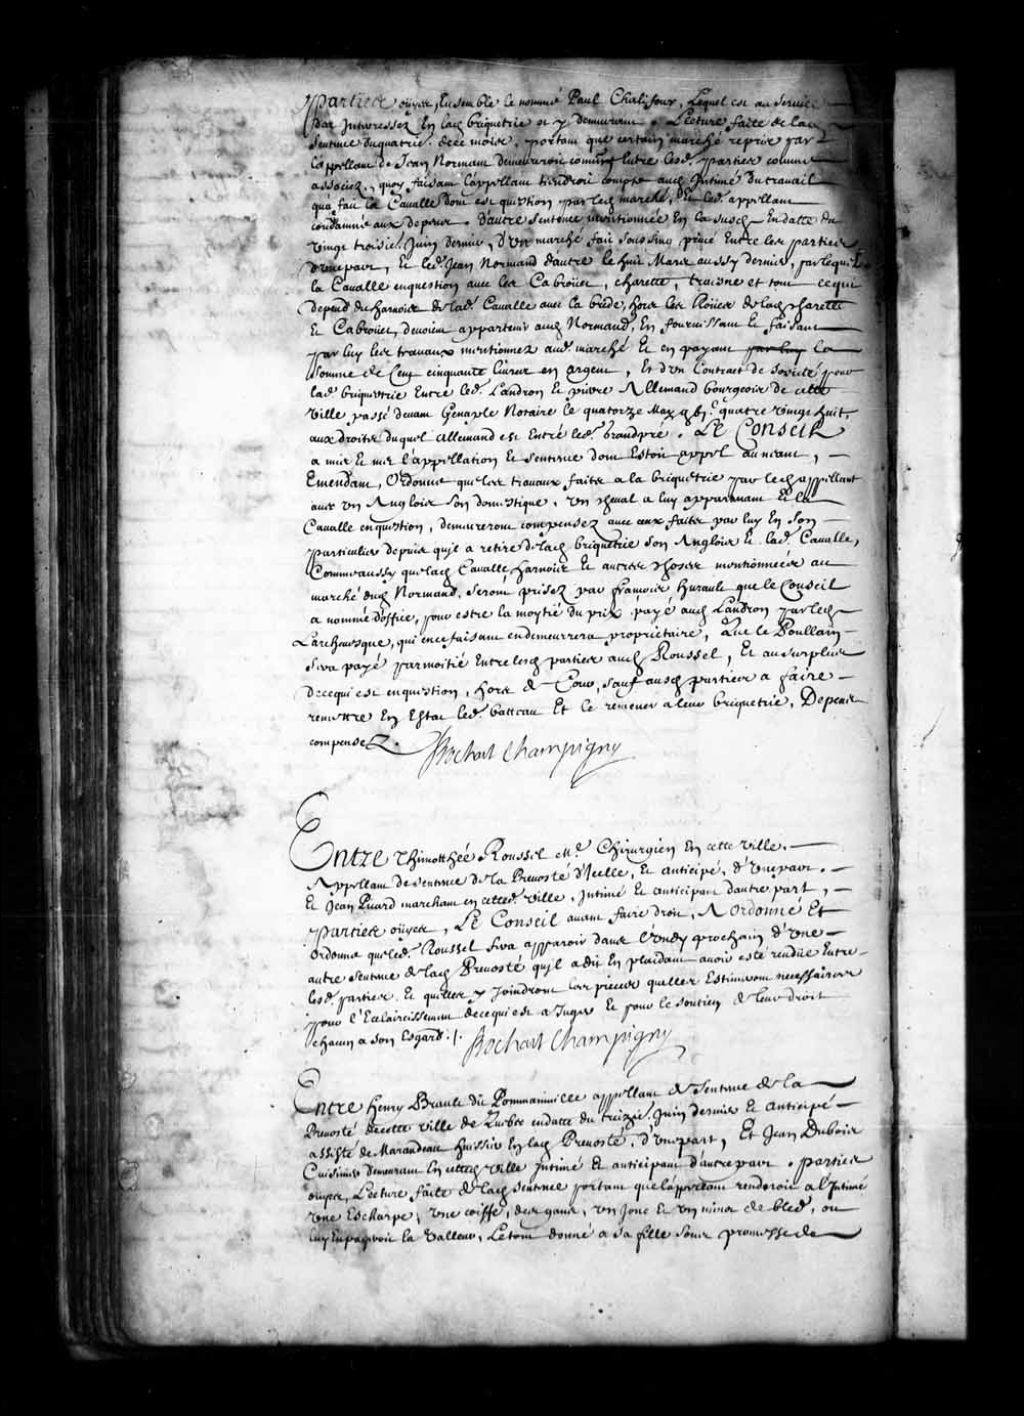 Parties ouyes, Ensemble le nommé Paul Chalifour, Lequel est au service
des Interessez En lad. briqueterie et y demeurant. Lecture faite de lad.
sentence du quatrie. de ce mois, portant que certain marché reprise par
L'appellant de Jean Normand demeureroit commun entre lesd. parties comme
associez, quoy faisant l'appellant tiendroit compte aud. Intimé du travail
qu'a fait la Cavalle dont est question par led. marché, Et led. appellant
condamné aux depens. d'autre sentence mentionnée En la susd. En datte du
vingt troisie. Juin dernier, d'un marché fait sous sing privé Entre les parties
d'une part, Et led. Jean Normand d'autre le huit Mars aussy dernier, par lequel
la Cavalle en question avec les Cabrouet, charette, traisne et tout ce qui
depend du harnois de lad. Cavalle avec la bride, hors les Roües de lad. charette
Et Cabrouet, devoient appartenir aud. Normand, En fournissant Et faisant
par luy les travaux mentionnez aud. marché Et en payant par luy la
somme de Cent cinquante livres en argent, Et d'un Contract de société pour
lad. briqueterie Entre led. Landron Et pierre Allemand bourgeois de cette
ville passé devant Genaple Notaire le quatorze May gbi.c quatre vingt huit,
aux droits duquel Allemand est Entré led. brandpré. LE Conseil
a mis Et met l'appellation Et sentence dont Estoit appel au neant, —
Emendant, Ordonne que les travaux faits a la briqueterie par led. appellant
avec un Anglois son domestique, un cheval a luy appartenant Et la
Cavalle en question, demeureront compensez avec ceux faits par luy En son —
particulier depuis qu'il a retiré de lad. briqueterie son Anglois Et lad. Cavalle,
Comme aussy que lad. Cavalle, harnois Et autres choses mentionnées au
marché dud. Normand, seront prisez par françois huraule que le Conseil
a nommé d'office, pour estre la moytié du prix payé aud. Landron par led.
Larchevesque, qui en ce faisant en demeurrera propriétaire, Que le Poullain —
sera payé par moitié Entre lesd. parties aud. Roussel, Et au surplus
de ce qui est en question, hors de Cour, sauf ausd. parties a faire —
remettre En Estat led. batteau Et le remener a leur briqueterie, Depens
compensez.
Bochart Champigny
Entre Thimothée Roussel Me. Chirurgien En cette ville, —
Appellant de sentence de la Prevosté d'icelle, Et anticipé, d'une part, —
Et Jean Picard marchant en cetted. ville, Intimé Et anticipant d'autre part, —
Parties ouyes, LE Conseil avant faire droit, A Ordonné Et
Ordonne que led. Roussel fera apparoir dans Lundy prochain d'une —
autre sentence de lad. Prevosté qu'il a dit En plaidant avoir esté rendüe Entre
lesd. parties Et qu'elles y Joindront les pieces qu'elles Estimeront necessaires
pour l'Eclaircissement de ce qui est a Juger Et pour le soutien de leur droit
chacun a son Esgard./.
Bochart Champigny
Entre Henry Brault dit Pommainville appellant de Sentence de la
Prevosté de cette ville de Quebec en datte du treizie. Juin dernier Et anticipé —
assisté de Marandeau huissier En lad. Prevosté, d'une part, Et Jean Dubois
Cuisinier demeurant En cetted. ville Intimé Et anticipant d'autre part. Parties
ouyes, Lecture faite de lad. sentence portant que l'appellant renderoit a l'Intimé
une Escharpe, une coiffe, des gans, un Jonc Et un minot de bled, ou
luy En payeroit la valleur, Le tout donné a sa fille sous promesse de